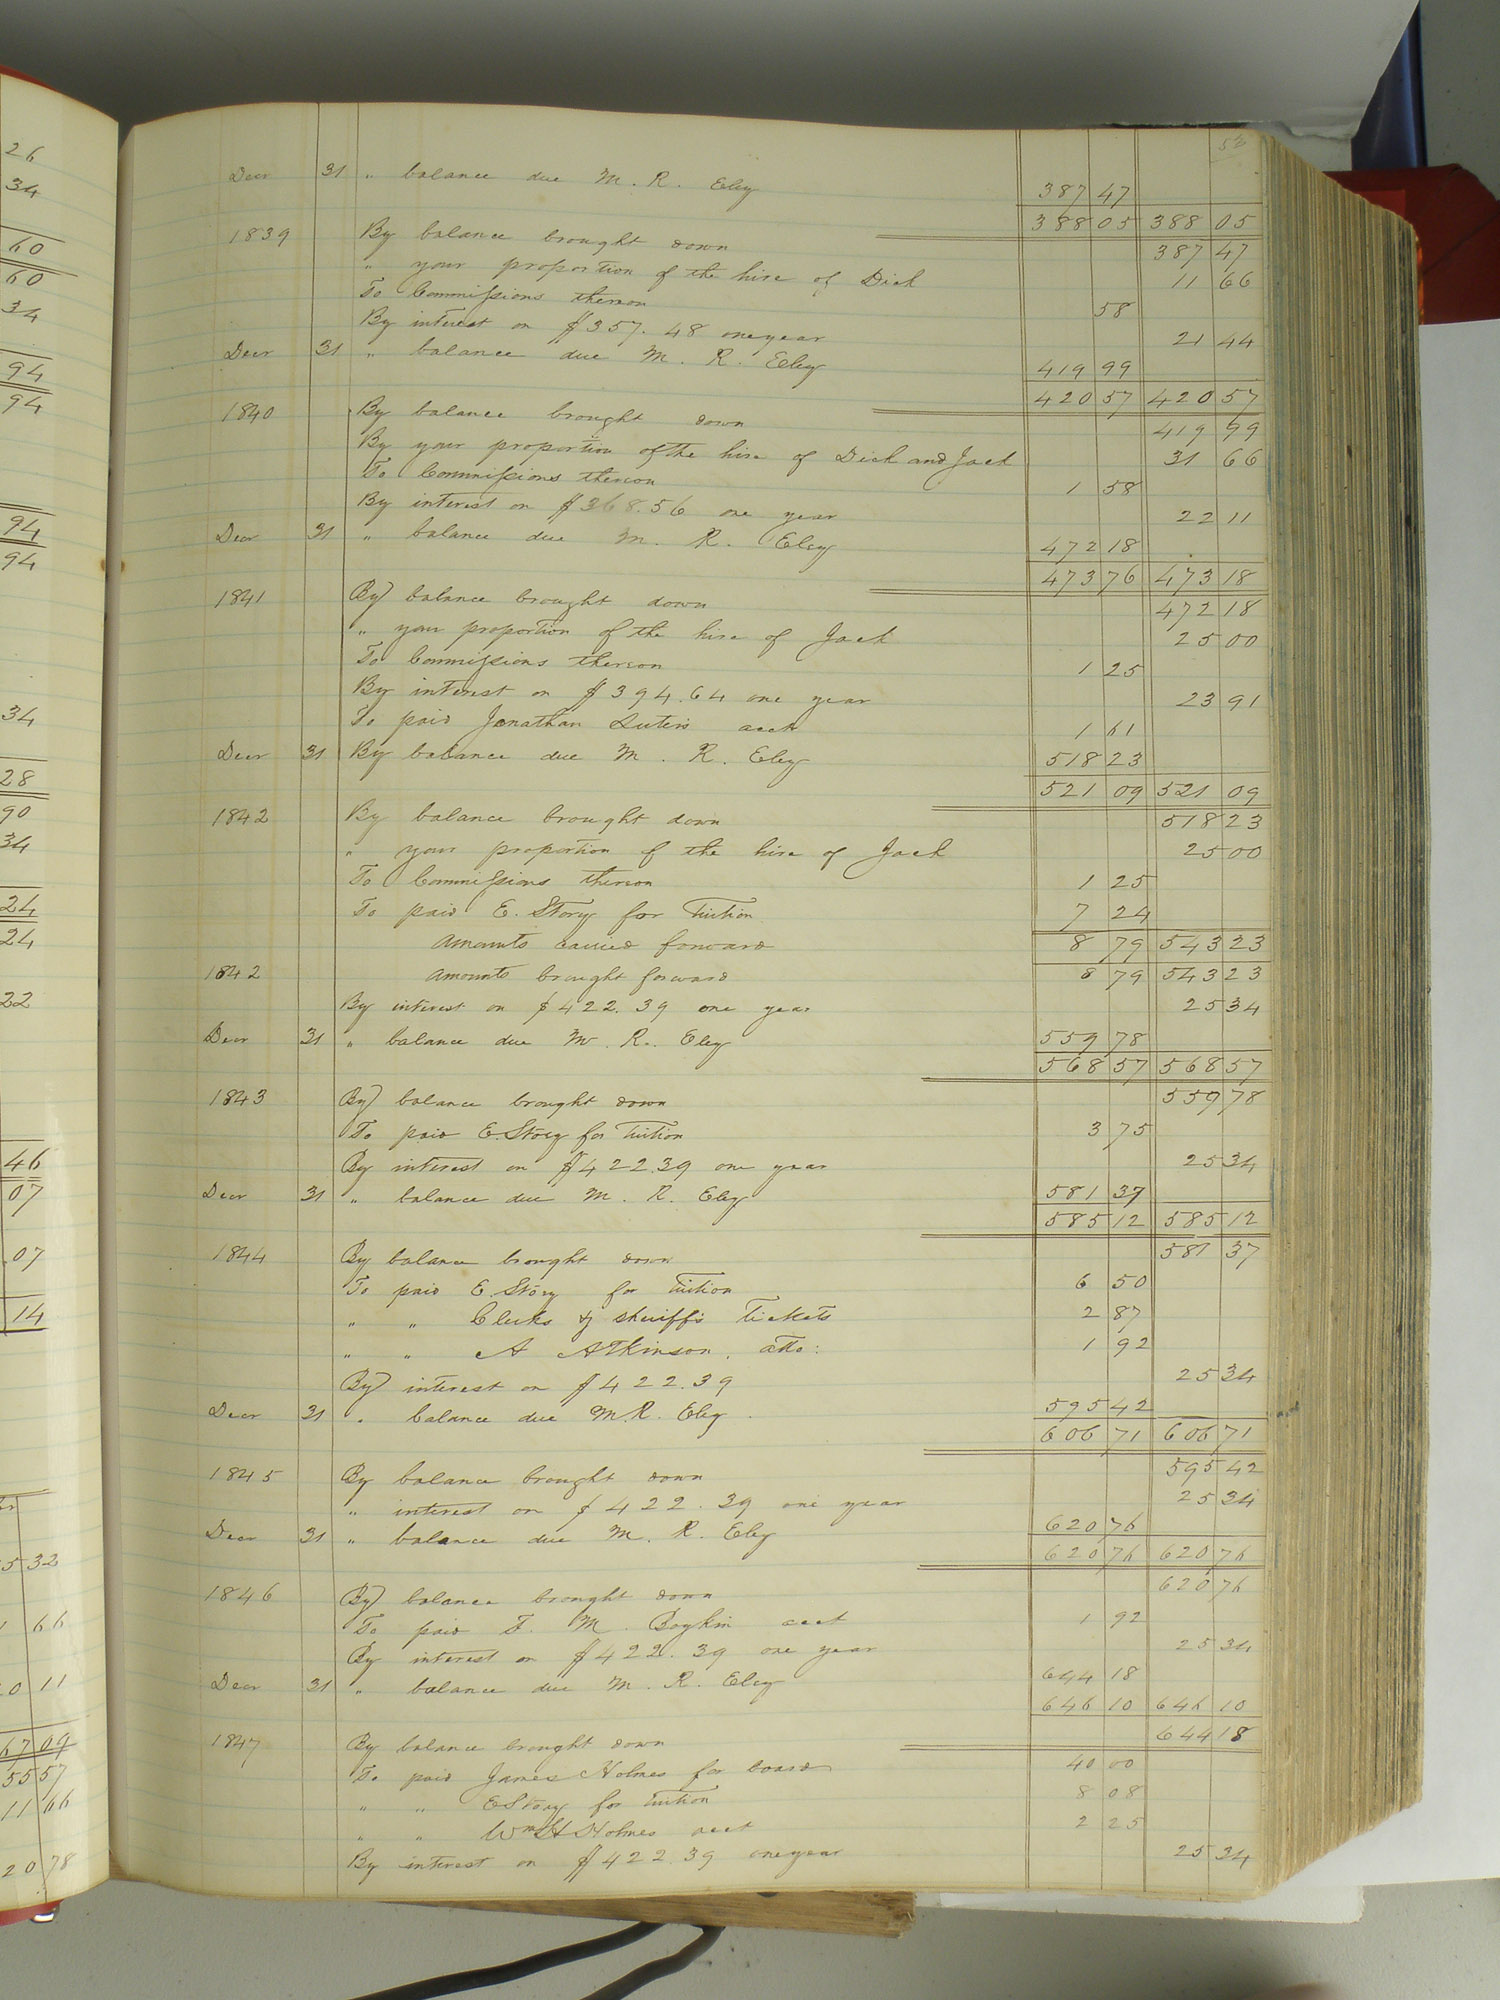 26
34
60
60
34
94
94
94
94
34
28
90
34
24
24
22
46
07
07
14
5 32
66
0 11
67 09
55 57
11 66
20 78
52
Decr 31 " balance due M. R. Eley 387 47
388 05 388 05
1839 By balance brought down 387 47
" your proportion of the hire of Dick 11 66
To Commissions thereon 58
By interest on $357.48 one year 21 44
Decr 31 " balance due M. R. Eley 419 99
420 57 420 57
1840 By balance brought down 419 99
By your proportion of the hire of Dick and Jack 31 66
To Commissions thereon 1 58
By interest on $368.56 one year 22 11
Decr 31 " balance due M. R. Eley 472 18
473 76 473 18
1841 By balance brought down 472 18
" your proportion of the hire of Jack 25 00
To Commissions thereon 1 25
By interest on $394.64 one year 23 91
To paid Jonathan Luter's acct 1 61
Decr 31 By balance due M. R. Eley 518 23
521 09 521 09
1842 By balance brought down 518 23
" your proportion of the hire of Jack 25 00
To Commissions thereon 1 25
To paid E. Story for Tuition 7 24
Amounts carried forward 8 79 543 23
1842 Amounts brought forward 8 79 543 23
By interest on $422.39 one year 25 34
Decr 31 " balance due M. R. Eley 559 78
568 57 568 57
1843 By balance brought down 559 78
To paid E. Story for Tuition 3 75
By interest on $422.39 one year 25 34
Decr 31 " balance due M. R. Eley 581 37
585 12 585 12
1844 By balance brought down 581 37
To paid E. Story for Tuition 6 50
" " Clerks & sheriff's Tickets 2 87
" " A Atkinson, atto: 1 92
By interest on $422.39 25 34
Decr 31 " balance due M. R. Eley 595 42
606 71 606 71
1845 By balance brought down 595 42
" interest on $422.39 one year 25 34
Decr 31 " balance due M. R. Eley 620 76
620 76 620 76
1846 By balance brought down 620 76
To paid F. M. Boykin acct 1 92
By interest on $422.39 one year 25 34
Decr 31 " balance due M. R. Eley 644 18
646 10 646 10
1847 By balance brought down 644 18
To paid James Holmes for board 40 00
" " E Story for Tuition 8 08
" " Wm H Holmes acct 2 25
By interest on $422.39 one year 25 34